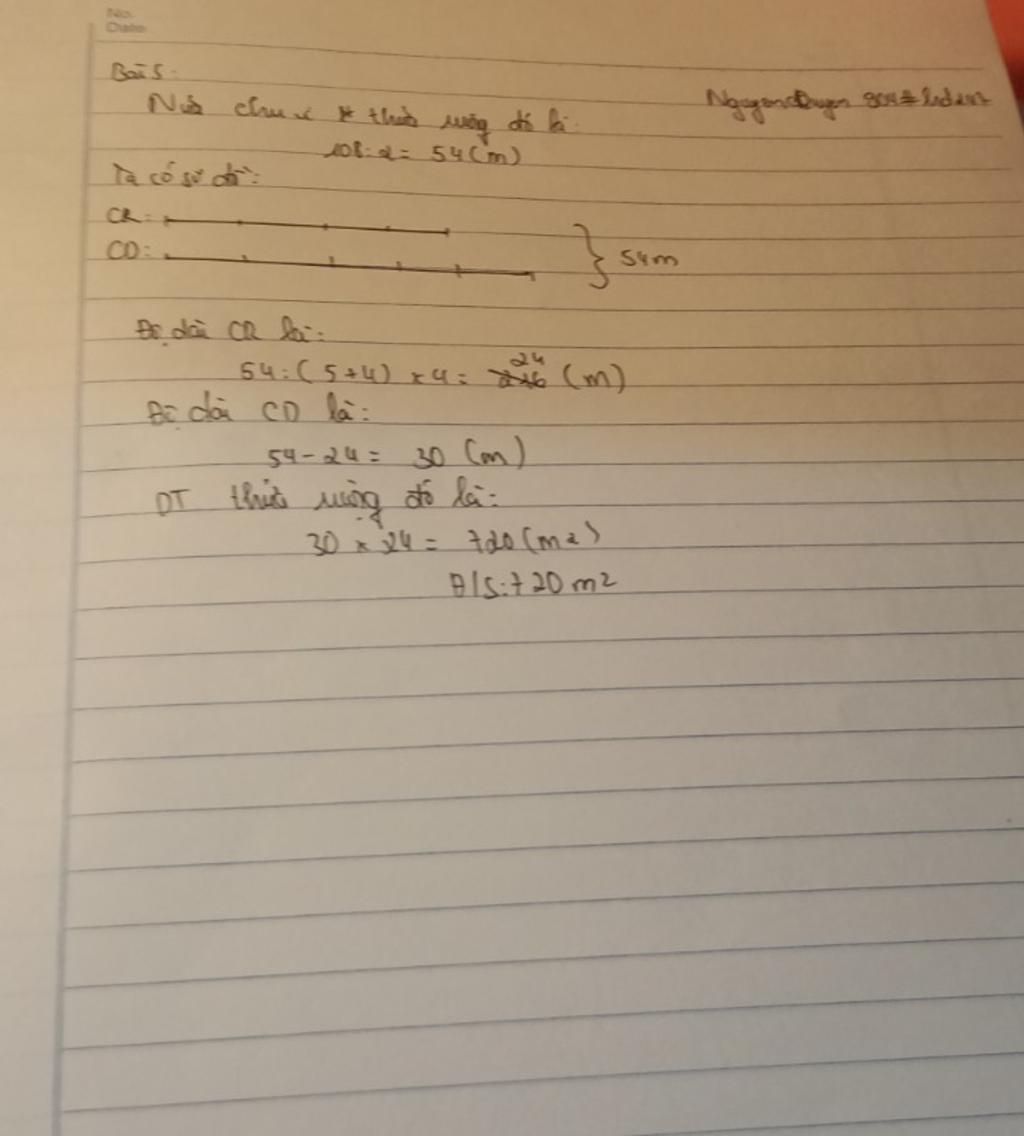 No.
Date
Bài 5:
Nửa chu vi thửa ruộng đó là:
108:2= 54(m)
Ta có sơ đồ:
CR:
CD:
54m
Độ dài CR là:
24
54:(5+4) x4= (m)
Độ dài CD là:
54-24= 30 (m)
DT thửa ruộng đó là:
30 x 24= 720(m2)
Đ/S:720m2